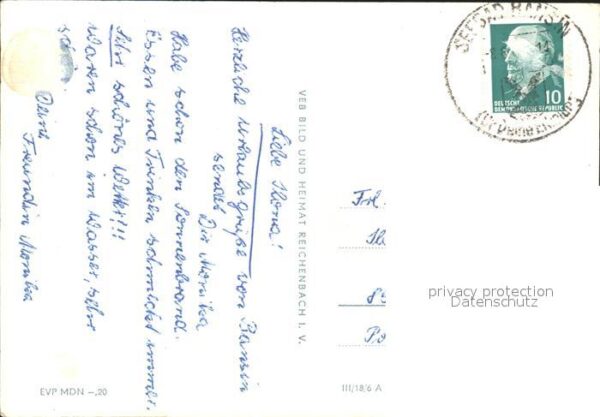 Liebe Ilona!
Herzliche Urlaubsgrüße von Bansin
sendet Dir Monika
Habe schon den Sonnenbrand.
Essen und Trinken schmeckt immer.
Sehr schönes Wetter!!!
Waren schon im Wasser, sehr
schön.
Deine
Freundin Monika
VEB BILD UND HEIMAT REICHENBACH I. V.
EVP MDN -,20
III/18/6 A
SEEBAD BANSIN
10
DEUTSCHE
DEMOKRATISCHE REPUBLIK
Frl.
privacy protection
Datenschutz